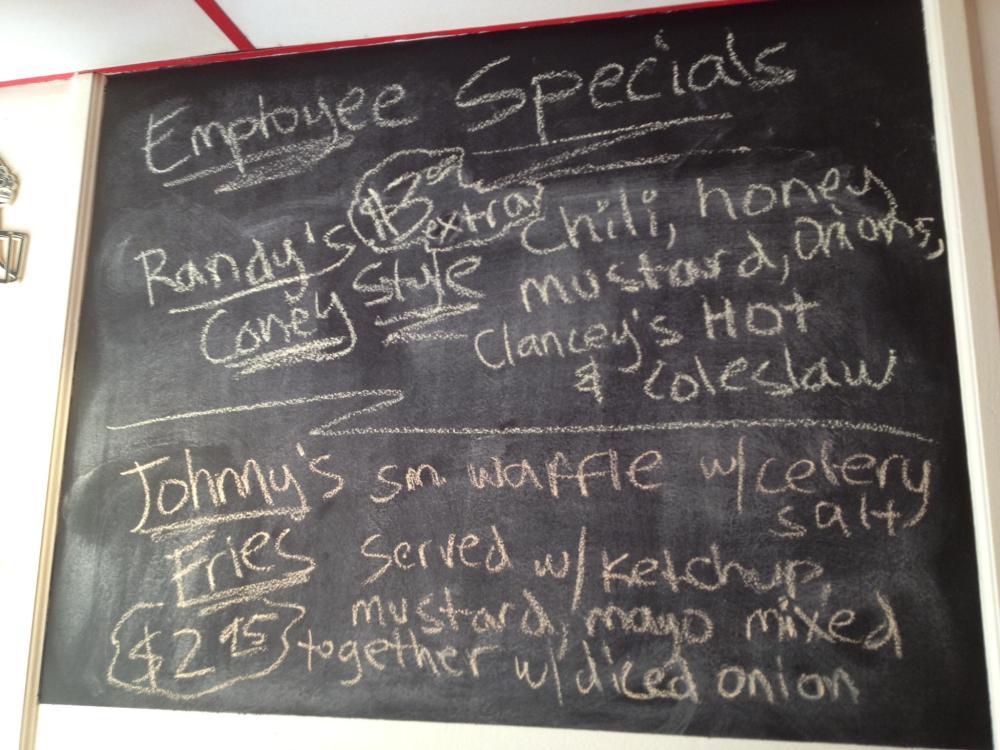 Employee Specials
Randy's $3.00 extra chili, honey
Coney Style mustard, onions,
Clancey's Hot
& coleslaw
Johnny's sm waffle w/celery
salt
Fries served w/ketchup,
mustard, mayo mixed
$2.95 together w/diced onion